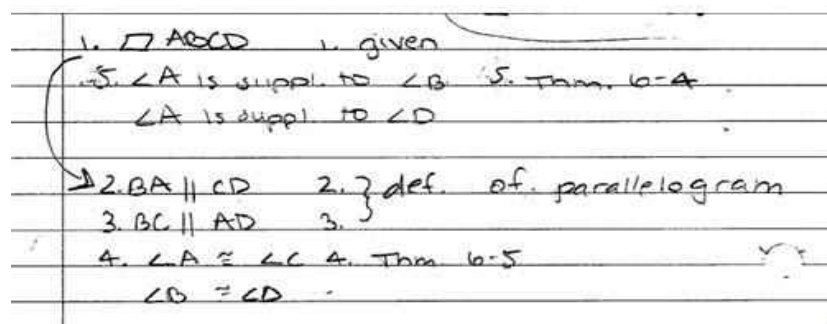 1. ▱ ABCD 1. given
5. ∠A is suppl. to ∠B 5. Thm. 6-4
∠A is suppl. to ∠D
2. BA || CD 2. } def. of. parallelogram
3. BC || AD 3.
4. ∠A ≅ ∠C 4. Thm 6-5
∠B ≅ ∠D